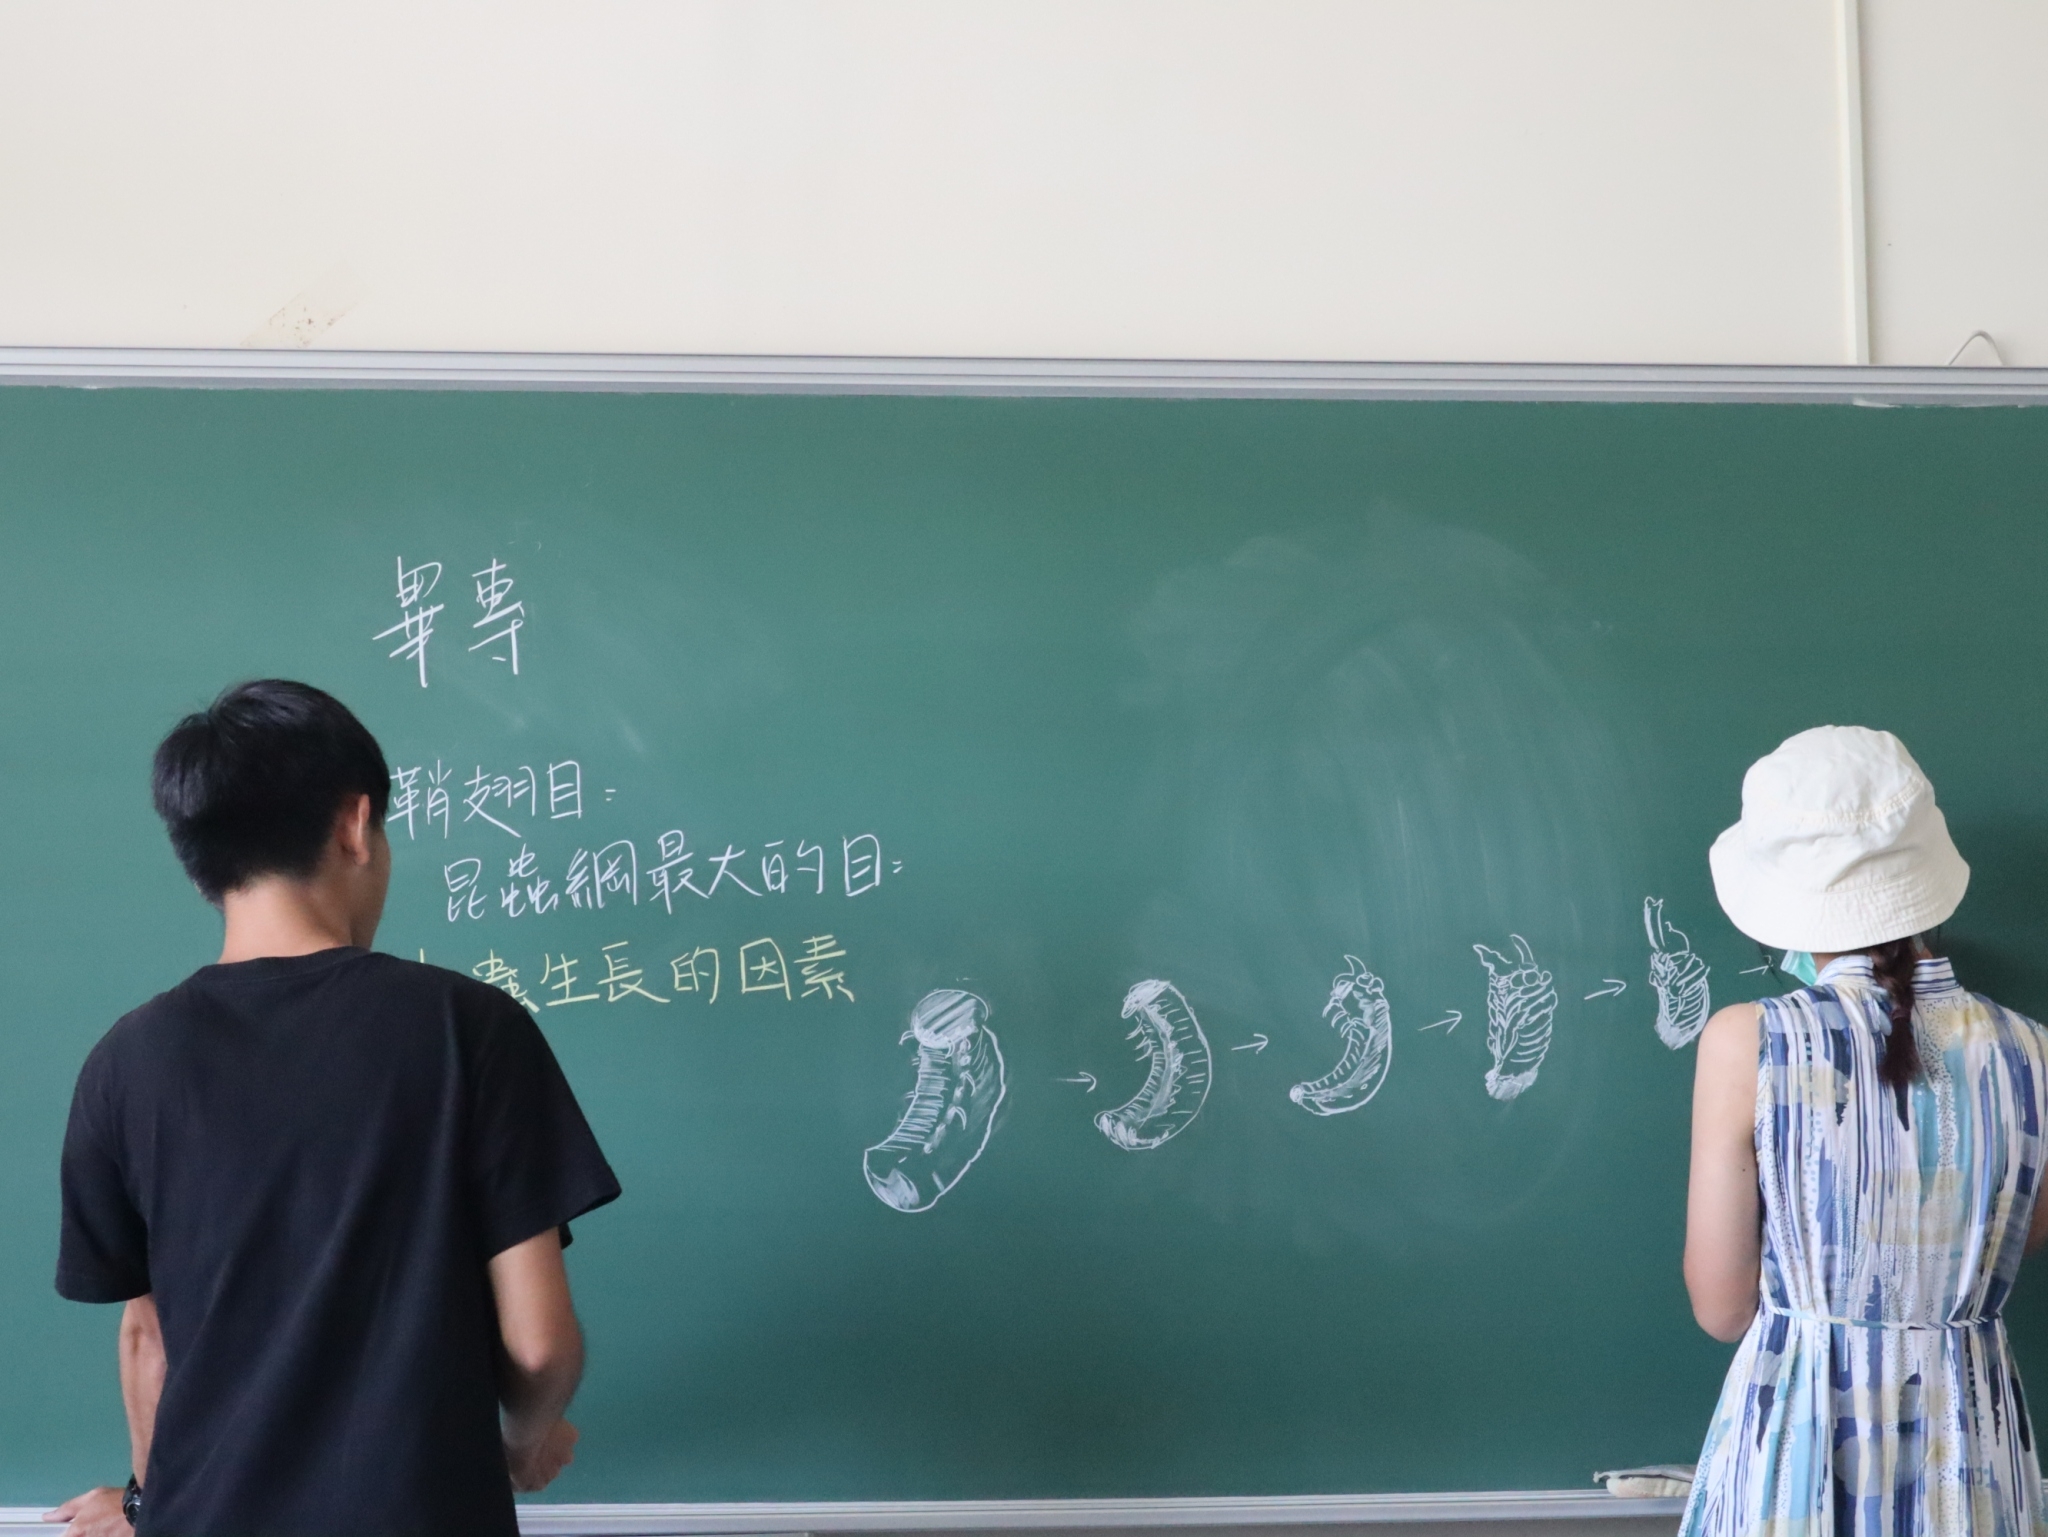 畢專
鞘翅目:
昆蟲綱最大的目:
蟲生長的因素